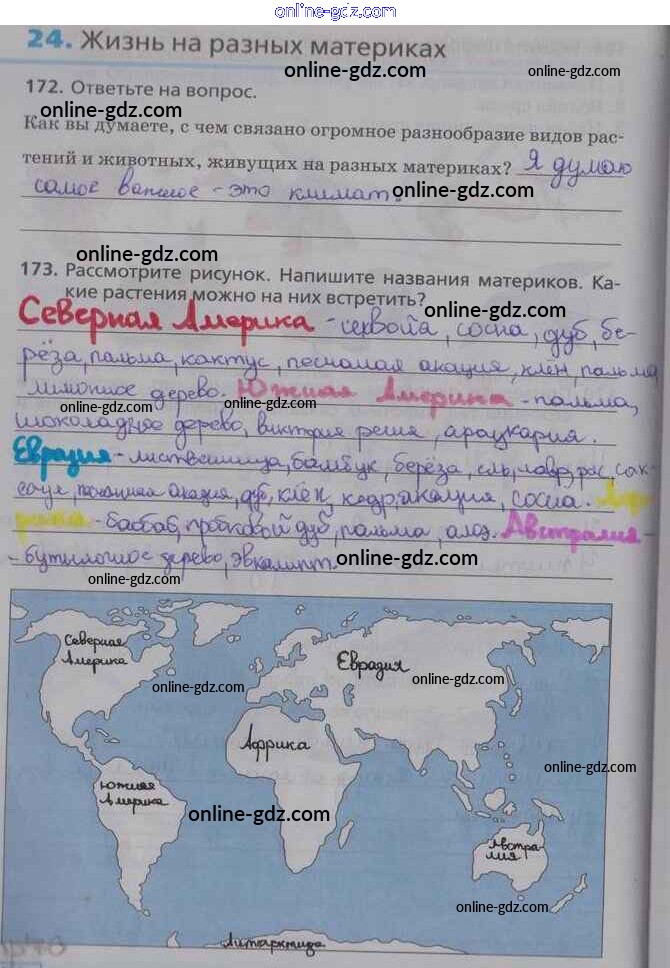 online-gdz.com
24. Жизнь на разных материках
online-gdz.com
online-gdz.com
172. Ответьте на вопрос.
online-gdz.com
Как вы думаете, с чем связано огромное разнообразие видов рас-
тений и животных, живущих на разных материках? Я думаю
самое важное - это климат.
online-gdz.com
online-gdz.com
173. Рассмотрите рисунок. Напишите названия материков. Ка-
кие растения можно на них встретить?
online-gdz.com
Северная Америка - секвойа, сосна, дуб, бе-
рёза, пальма, кактус, песчаная акация, клён, пальма
лимонное дерево. Южная Америка - пальма,
online-gdz.com
online-gdz.com
шоколадное дерево, виктория регия, араукария.
Евразия - лиственница, бамбук, берёза, ель, лавр, сак-
саул, песчаная акация, дуб, клён, кедр, акация, сосна. Аф-
рика - баобаб, пробковый дуб, пальма, алоэ. Австралия -
- бутылочное дерево, эвкалипт.
online-gdz.com
online-gdz.com
Северная
Америка
Евразия
online-gdz.com
online-gdz.com
Африка
online-gdz.com
Южная
Америка
online-gdz.com
Австра-
лия
online-gdz.com
Антарктида